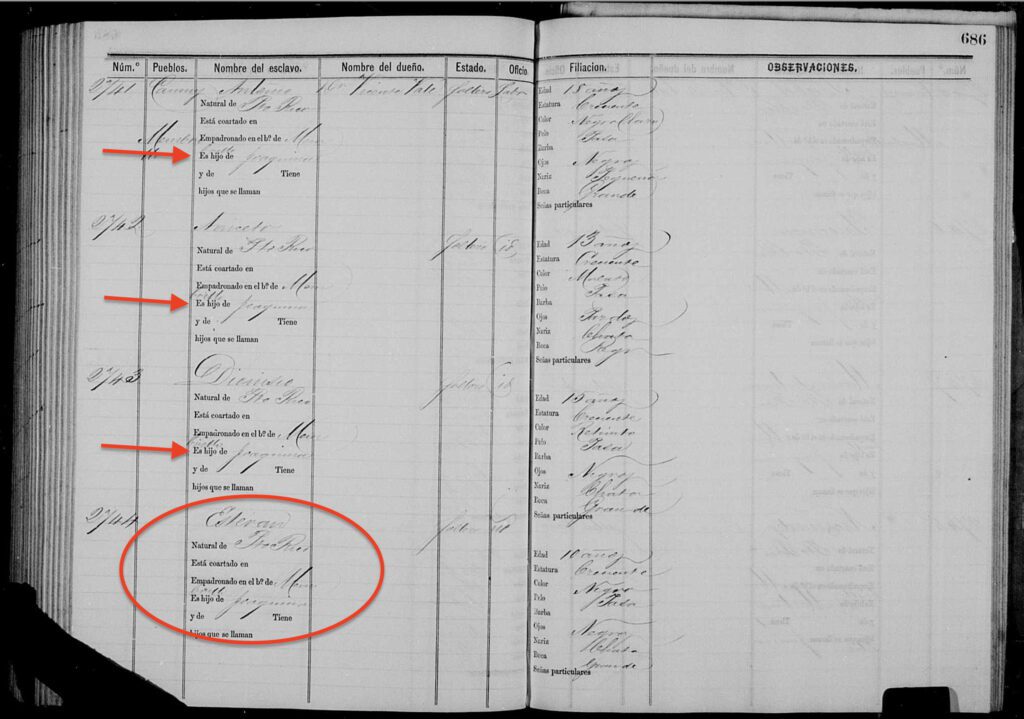 686
Núm.º Pueblos. Nombre del esclavo. Nombre del dueño. Estado. Oficio. Filiacion. OBSERVACIONES.
2741 Antonio Vicente Soltero Edad 18 años
Natural de Pto Rico Estatura Creciente
Está coartado en Color Negro Claro
Empadronado en el b.º de Pelo Pasa
Barba
Es hijo de Joaquina Ojos Negros
y de Tiene Nariz Pequeña
hijos que se llaman Boca Grande
Señas particulares
2742 Aniceto
Natural de Pto Rico Soltero id Edad 13 años
Está coartado en Estatura Creciente
Empadronado en el b.º de Color Mulato
Pelo Pasa
Es hijo de Joaquina Barba
y de Tiene Ojos Pardos
hijos que se llaman Nariz Chata
Boca
Señas particulares
2743 Dionisio Soltero id
Natural de Pto Rico Edad 15 años
Está coartado en Estatura Creciente
Empadronado en el b.º de Color Retinto
Pelo Pasa
Es hijo de Joaquina Barba
y de Tiene Ojos Negros
hijos que se llaman Nariz Chata
Boca Grande
2744 Estevan Soltero id Señas particulares
Natural de Pto Rico Edad 10 años
Está coartado en Estatura Creciente
Empadronado en el b.º de Color Negro
Es hijo de Joaquina Pelo Pasa
Barba
y de Tiene Ojos Negros
hijos que se llaman Nariz Chata
Boca Grande
Señas particulares